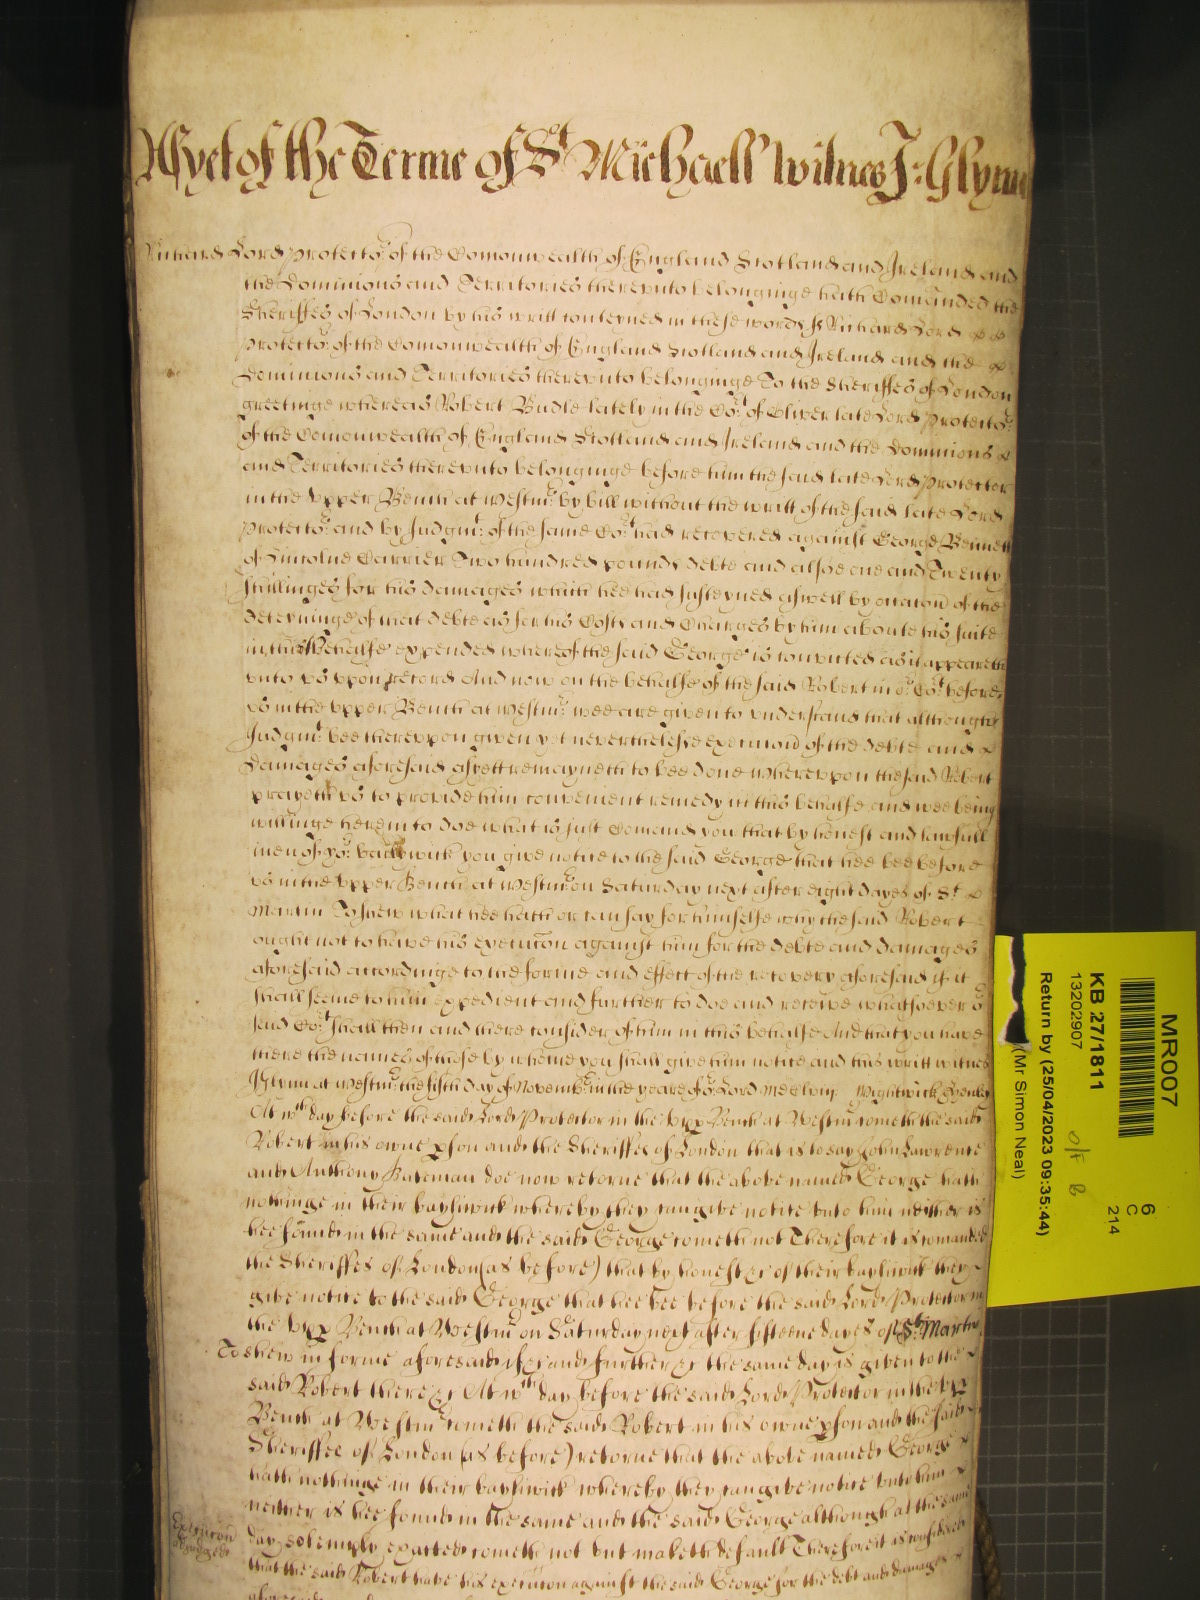 As yet of the Terme of St Michaell Witnes J: Glynn
Richard Lord Protector of the Comonwealth of England Scotland and Ireland and
the Dominions and Territories therevnto belonginge hath Comanded the
Sheriffes of London by his writt conteyned in these words ss Richard Lord
Protector of the Comonwealth of England Scotland and Ireland and the
Dominions and Territories therevnto belonginge To the Sheriffes of London
greetinge whereas Robert Budle lately in the Cort of Oliver late Lord Protector
of the Comonwealth of England Scotland and Ireland and the Dominions &
and Territories therevnto belonginge before him the said late Lord Protector
in the vpper Bench at Westmr by bill without the writt of the said late Lord
Protector and by Judgmt of the same Cort had recovered against George Bennett
of Lincolne Carrier Two hundred pounds debte and alsoe one and Twenty
shillinges for his damages which hee had susteyned aswell by occacion of the
deteyninge of that debte as for his Costs and Charges by him aboute his suite
in this behalfe expended whereof the said George is convicted as it appeareth
vnto vs vpon record And now on the behalfe of the said Robert in or Cort before
vs in the vpper Bench at Westmr wee are given to vnderstand that although
Judgmt bee therevpon given yet neverthelesse execucion of the debte and
damages aforesaid as yett remayneth to bee done wherevpon the said Robert
prayeth vs to provide him convenient remedy in this behalfe and wee being
willinge herein to doe what is just Comand you that by honest and lawfull
men of yor bailywick you give notice to the said George that hee bee before
vs in the vpper Bench at Westmr on Saturday next after eight dayes of St
Martin To shew what hee hath or can say for himselfe why the said Robert
ought not to have his execucon against him for the debte and damages
aforesaid accordinge to the forme and effect of the recovery aforesaid if it
shall seeme to him expedient and further to doe and receive whatsoever or
said Cort shall then and there consider of him in this behalfe And that you have
there the names of those by whome you shall give him notice and this writt witnes
J Glynn at Westmr the fifth day of Novembr in the yeare of or Lord MDClviij Wightwick
At wch day before the said Lord Protector in the vpp Bench at Westmr cometh the said
Robert in his owne pson and the Sheriffes of London that is to say John Lawrence
and Anthony Bateman doe now retorne that the above named George hath
nothinge in their bayliwick whereby they can give notice vnto him neither is
hee found in the same and the said George cometh not Therefore it is comanded
the Sheriffes of London (as before) that by honest &c of their bayliwick they
give notice to the said George that hee bee before the said Lord Protector in
the vpp Bench at Westmr on Saturday next after fifteene dayes of St Martin
To shew in forme aforesaid if &c and further &c the same day is given to the
said Robert there &c At wch day before the said Lord Protector in the vpp
Bench at Westmr cometh the said Robert in his owne pson and the said
Sheriffes of London (as before) retorne that the above named George
hath nothinge in their bayliwick whereby they can give notice vnto him
neither is hee found in the same and the said George although at the same
Execucon
adjudged
day solemnly exacted cometh not but maketh default Therefore it is considered
that the said Robert have his execucon against the said George for the debt and damages
aforesaid
MR007
6
C
214
KB 27/1811
13202907
Return by (25/04/2023 09:35:44)
(Mr Simon Neal)